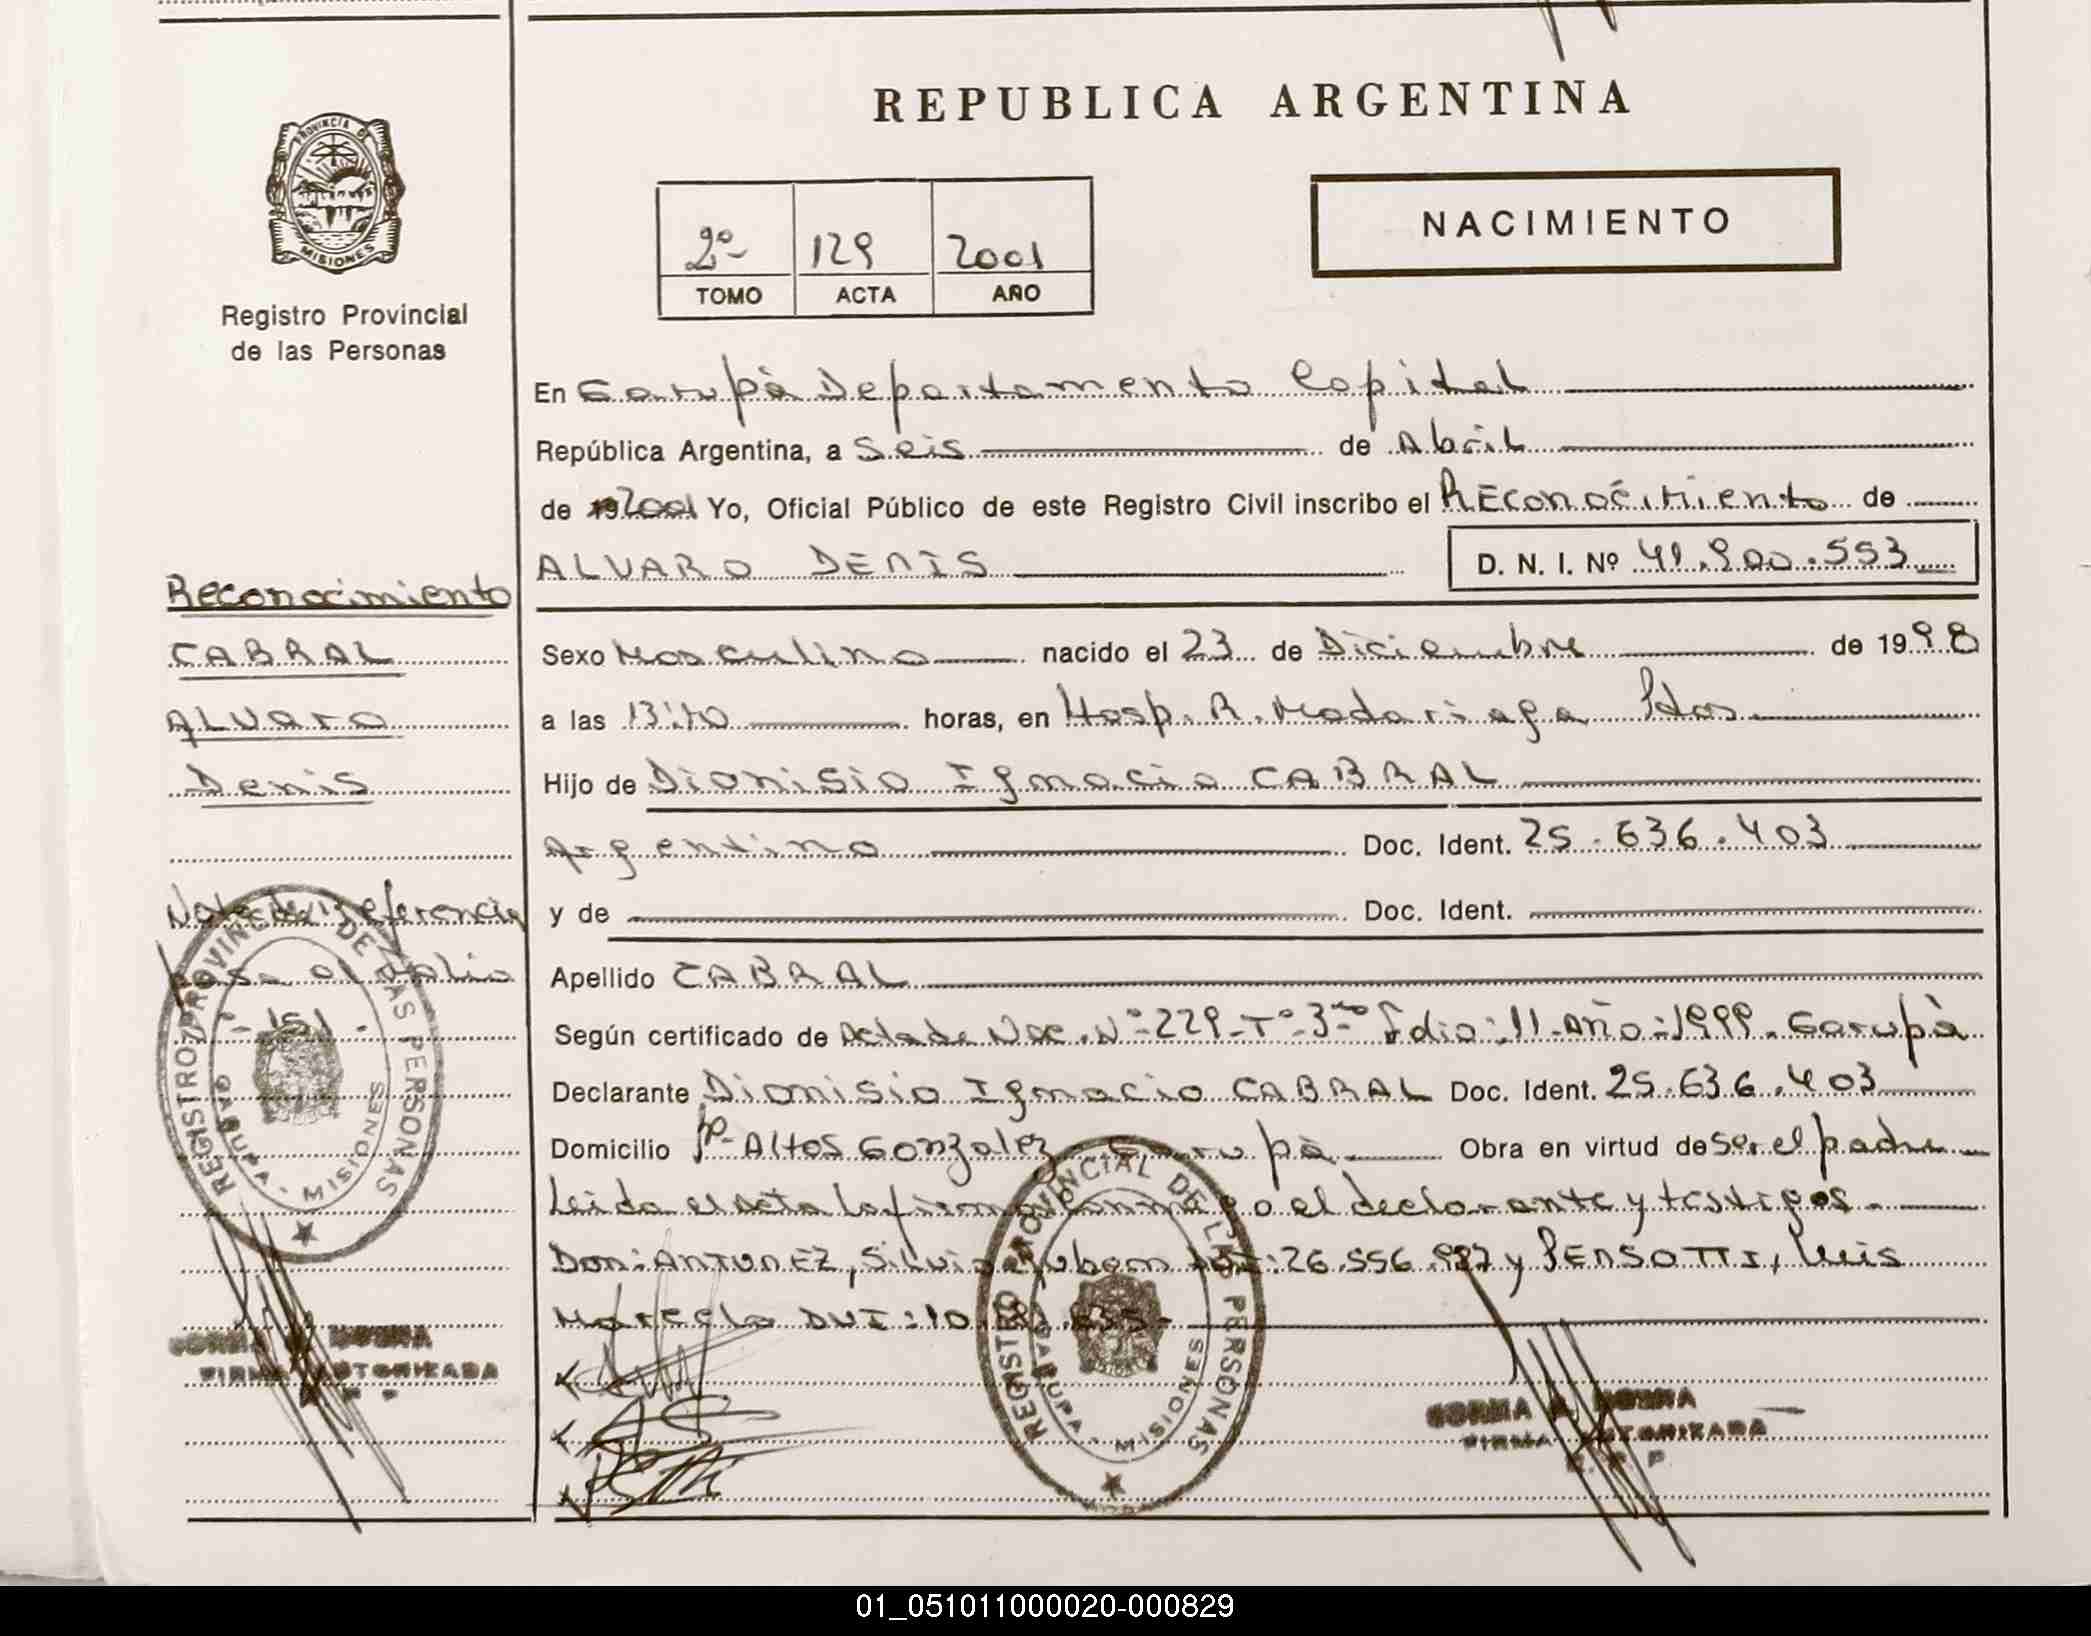 REPUBLICA ARGENTINA
PROVINCIA DE
MISIONES
Registro Provincial
de las Personas
2º 129 2001
TOMO ACTA AÑO
NACIMIENTO
En Garupà Departamento Capital
República Argentina, a Seis de Abril
de 2001 Yo, Oficial Público de este Registro Civil inscribo el REconocimiento de
ALVARO DENIS D. N. I. Nº 41.900.553
Sexo Masculino nacido el 23 de Diciembre de 1998
a las 13:10 horas, en Hosp. R. Madariaga Pdas
Hijo de Dionisio Ignacio CABRAL
Argentino Doc. Ident. 25.636.403
y de Doc. Ident.
Apellido CABRAL
Según certificado de Acta de Nac. Nº 229-Tº-3º Folio:11-Año:1999. Garupà
Declarante Dionisio Ignacio CABRAL Doc. Ident. 25.636.403
Domicilio Bº Altos Gonzalez Garupà Obra en virtud de Ser el padre
Leida el acta la firma conmigo el declarante y testigos
Don: ANTUNEZ, Silvio Ruben DNI:26.556. y PENSOTTI, Luis
Marcelo DNI:10.
Reconocimiento
CABRAL
Alvaro
Denis
Nota de Referencia
pasa al folio
151
REGISTRO PROVINCIAL DE LAS PERSONAS
GARUPA - MISIONES
FIRMA AUTORIZADA
REGISTRO PROVINCIAL DE LAS PERSONAS
GARUPA - MISIONES
FIRMA AUTORIZADA
R. P. P.
01_051011000020-000829